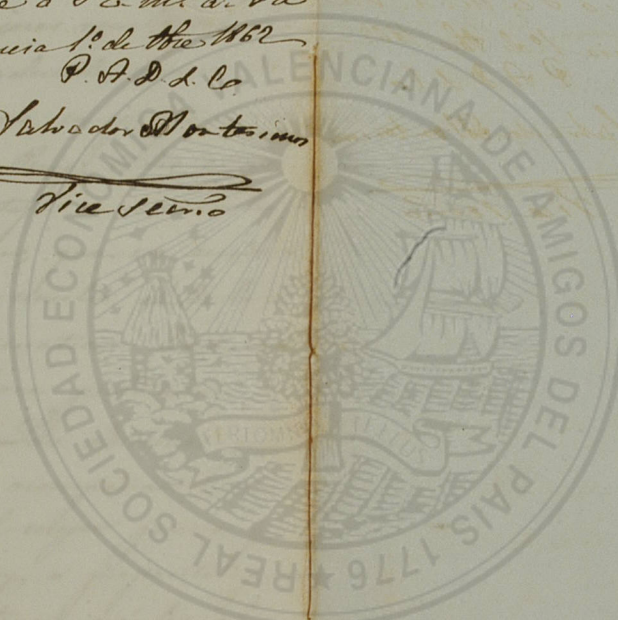 uia 1º. de 8bre 1862
P. A. D. L. C.
Salvador Montesinos
Vice Secrio
REAL SOCIEDAD ECONOMICA VALENCIANA DE AMIGOS DEL PAIS 1776